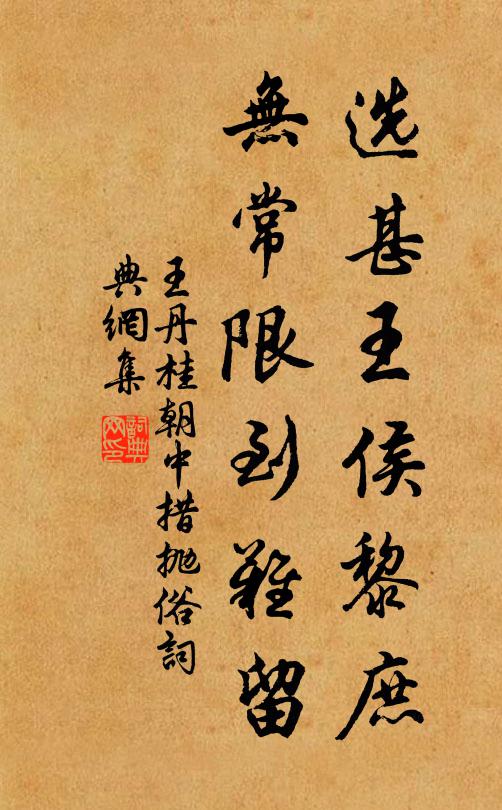 选甚王侯黎庶
無常限到難留
王丹桂朝中措抛俗詞
典網集
詞典網印